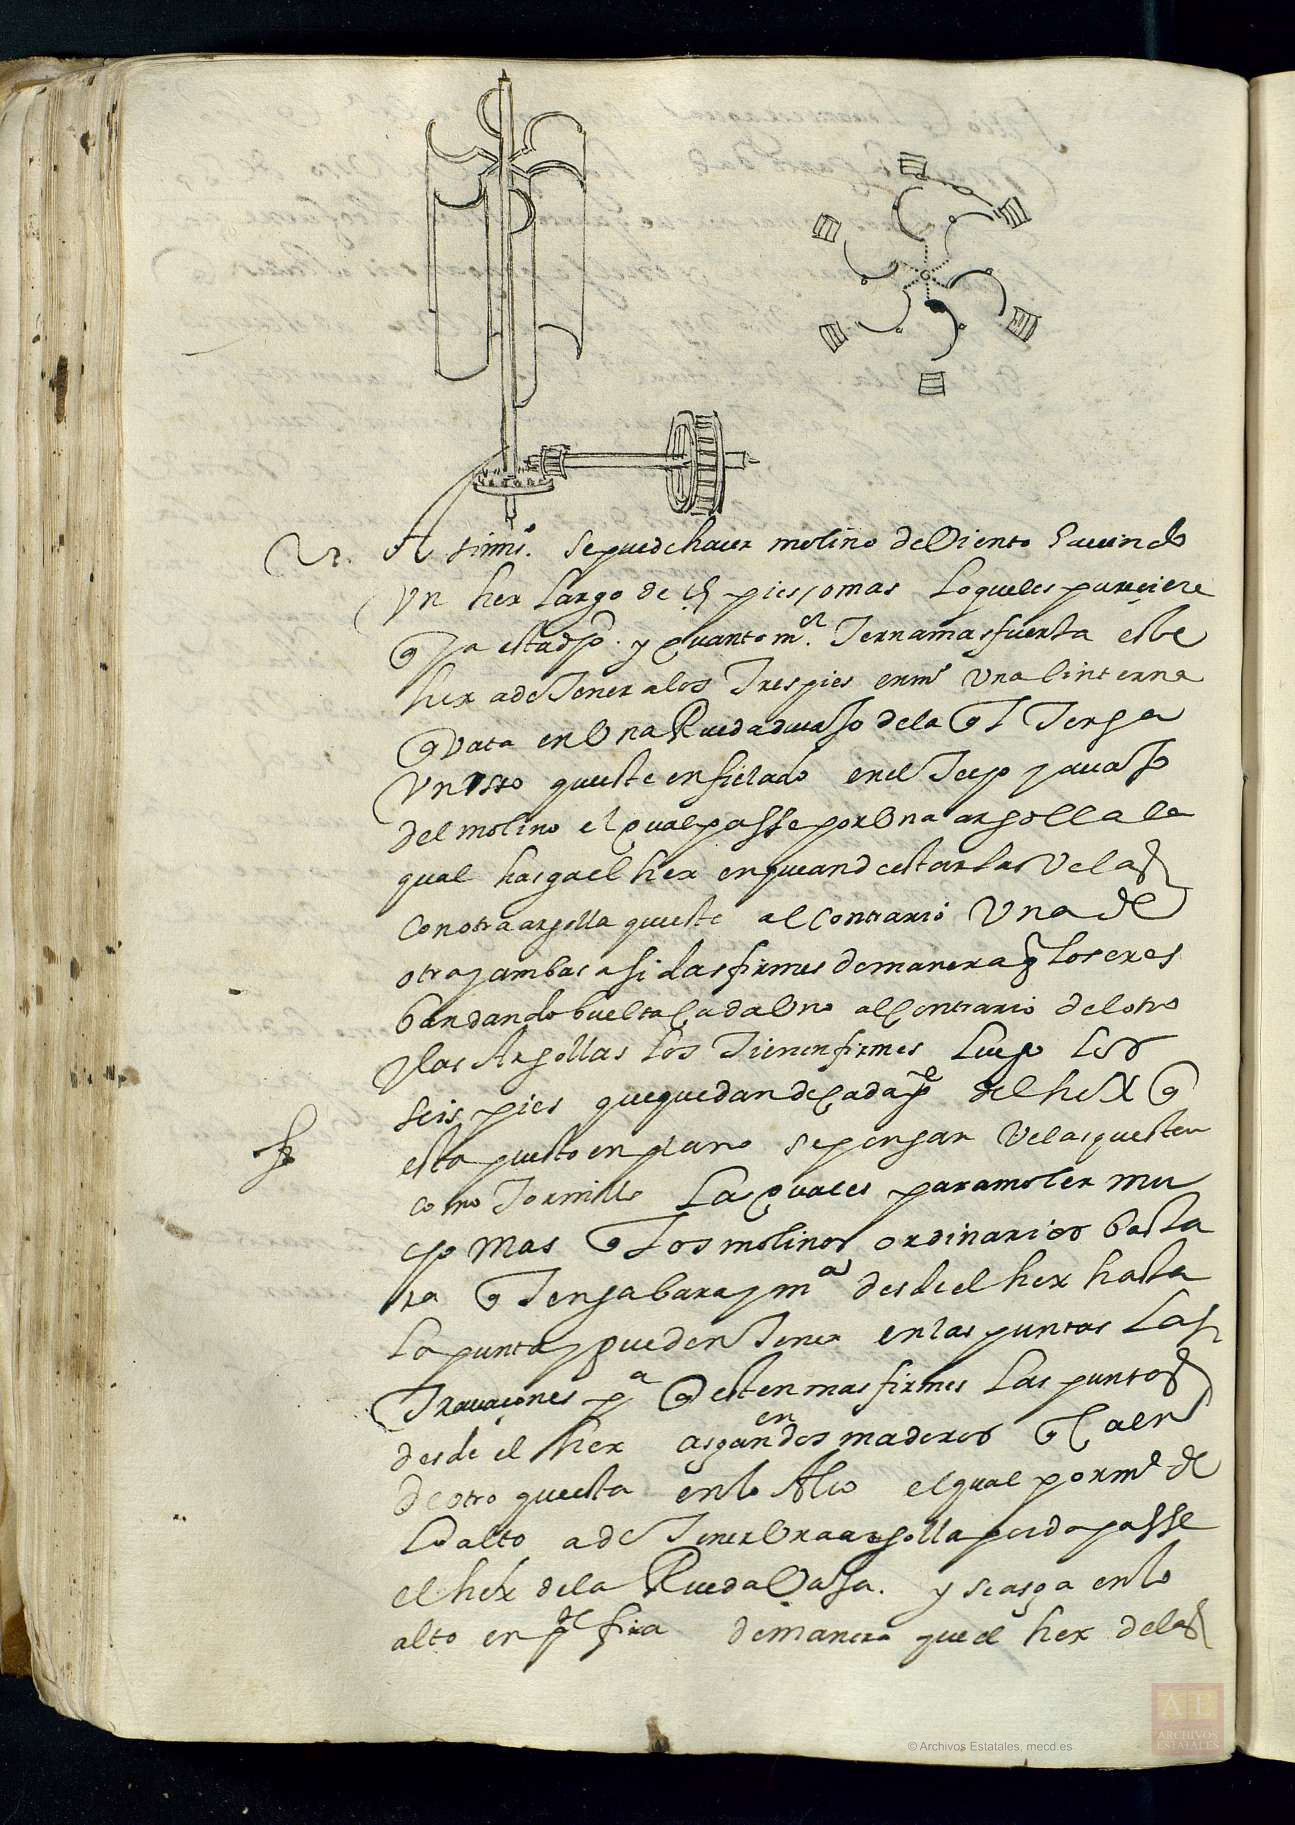 A simis.º se puede hacer molino de Viento haciendo
Un hex largo de 15 pies, o mas lo que les pareciere
q̃ ya esta dho. y quanto m.or Terna mas fuerza este
hex a de Tener a los Tres pies en m.º Una linterna
q̃ vata en Una Rueda devajo de la q̃l Tenga
Un isso queste enfielado en el Techo y avajo
del molino el qual passe por Una argolla la
qual hasga el hex en que and estar las Velas
con otra argolla queste al Contrario Una de
otra y ambas asi las firmes de manera q̃ los exes
ban dando buelta Cada Uno al Contrario del otro
y las Argollas los Tienen firmes Luego los
seis pies que quedan de Cada p.te del hex q̃
esta puesto en plano se pongan Velas questen
como Tornillo La quales para moler mu
cho Mas q̃ Los molinos ordinarios basta
ra q̃ Tenga bara y m.a desde el hex hasta
la punta y pueden Tener en las puntas Las
Travaçones p.a q̃ esten mas firmes Las puntas
desde el hex asgan en dos maderos q̃ Caen
de otro questa en lo Alto el qual por m.º de
Lo alto a de Tener Una argolla por do passe
el hex de la Rueda Vaja. y se asga en lo
alto en p.te fixa de manera que el hex de las
© Archivos Estatales, mecd.es
AE
ARCHIVOS
ESTATALES